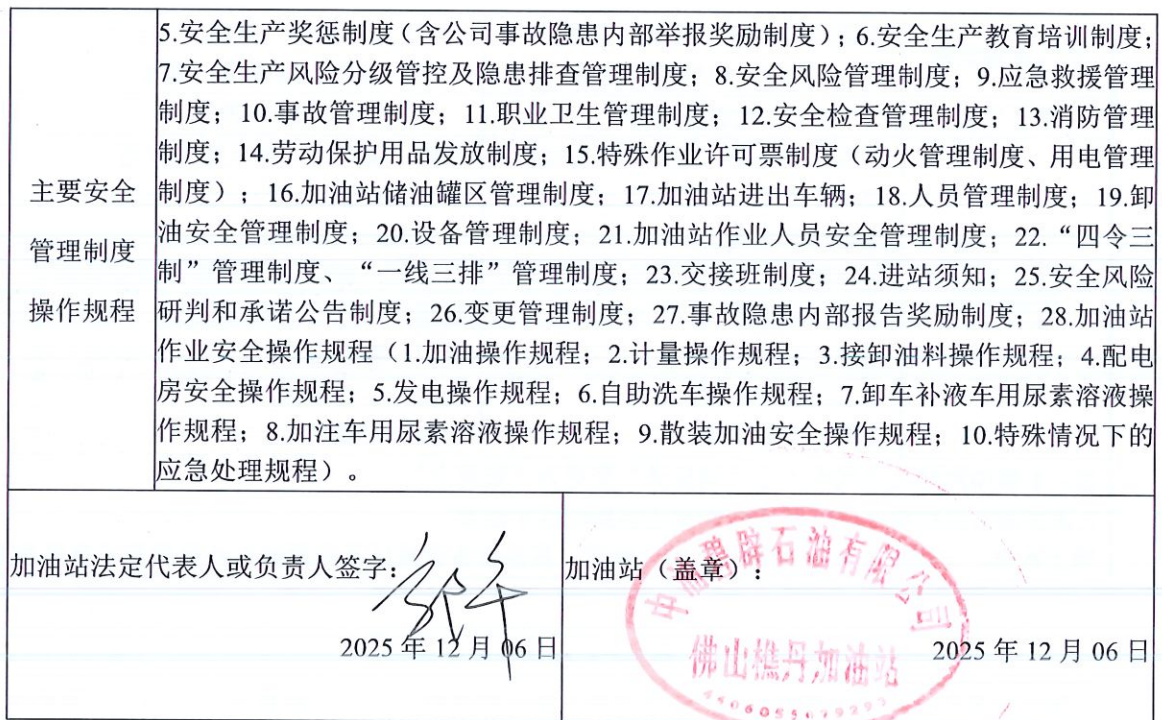 5.安全生产奖惩制度（含公司事故隐患内部举报奖励制度）；6.安全生产教育培训制度；
7.安全生产风险分级管控及隐患排查管理制度；8.安全风险管理制度；9.应急救援管理
制度；10.事故管理制度；11.职业卫生管理制度；12.安全检查管理制度；13.消防管理
制度；14.劳动保护用品发放制度；15.特殊作业许可票制度（动火管理制度、用电管理
主要安全
制度）；16.加油站储油罐区管理制度；17.加油站进出车辆；18.人员管理制度；19.卸
油安全管理制度；20.设备管理制度；21.加油站作业人员安全管理制度；22.“四令三
管理制度
制”管理制度、“一线三排”管理制度；23.交接班制度；24.进站须知；25.安全风险
操作规程
研判和承诺公告制度；26.变更管理制度；27.事故隐患内部报告奖励制度；28.加油站
作业安全操作规程（1.加油操作规程；2.计量操作规程；3.接卸油料操作规程；4.配电
房安全操作规程；5.发电操作规程；6.自助洗车操作规程；7.卸车补液车用尿素溶液操
作规程；8.加注车用尿素溶液操作规程；9.散装加油安全操作规程；10.特殊情况下的
应急处理规程）。
加油站法定代表人或负责人签字：
2025 年 12 月 06 日
加油站（盖章）：
中油碧辟石油有限公司
佛山樵丹加油站
2025 年 12 月 06 日